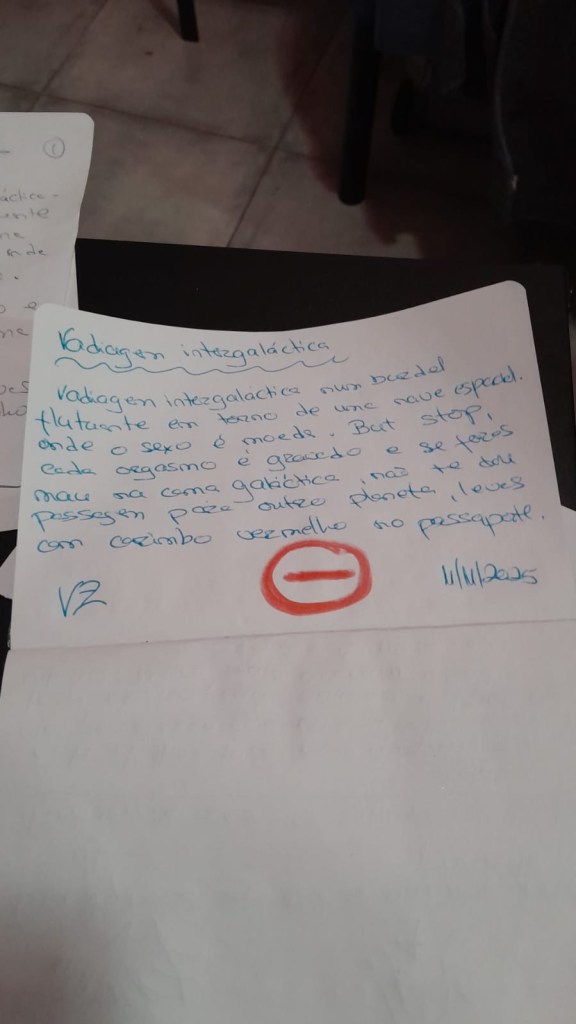 ①
áctica -
ente
me
onde
Vadiagen intergaláctica
Vadiagen intergaláctica num bordel
flutuante em torno de uma nave espacial.
onde o sexo é moeda. But stop,
cada orgasmo é gravado e se fores
mau na cama galáctica, não te dão
passagen para outro planeta, leves
com carimbo vermelho no passaporte.
VZ
11/11/2025